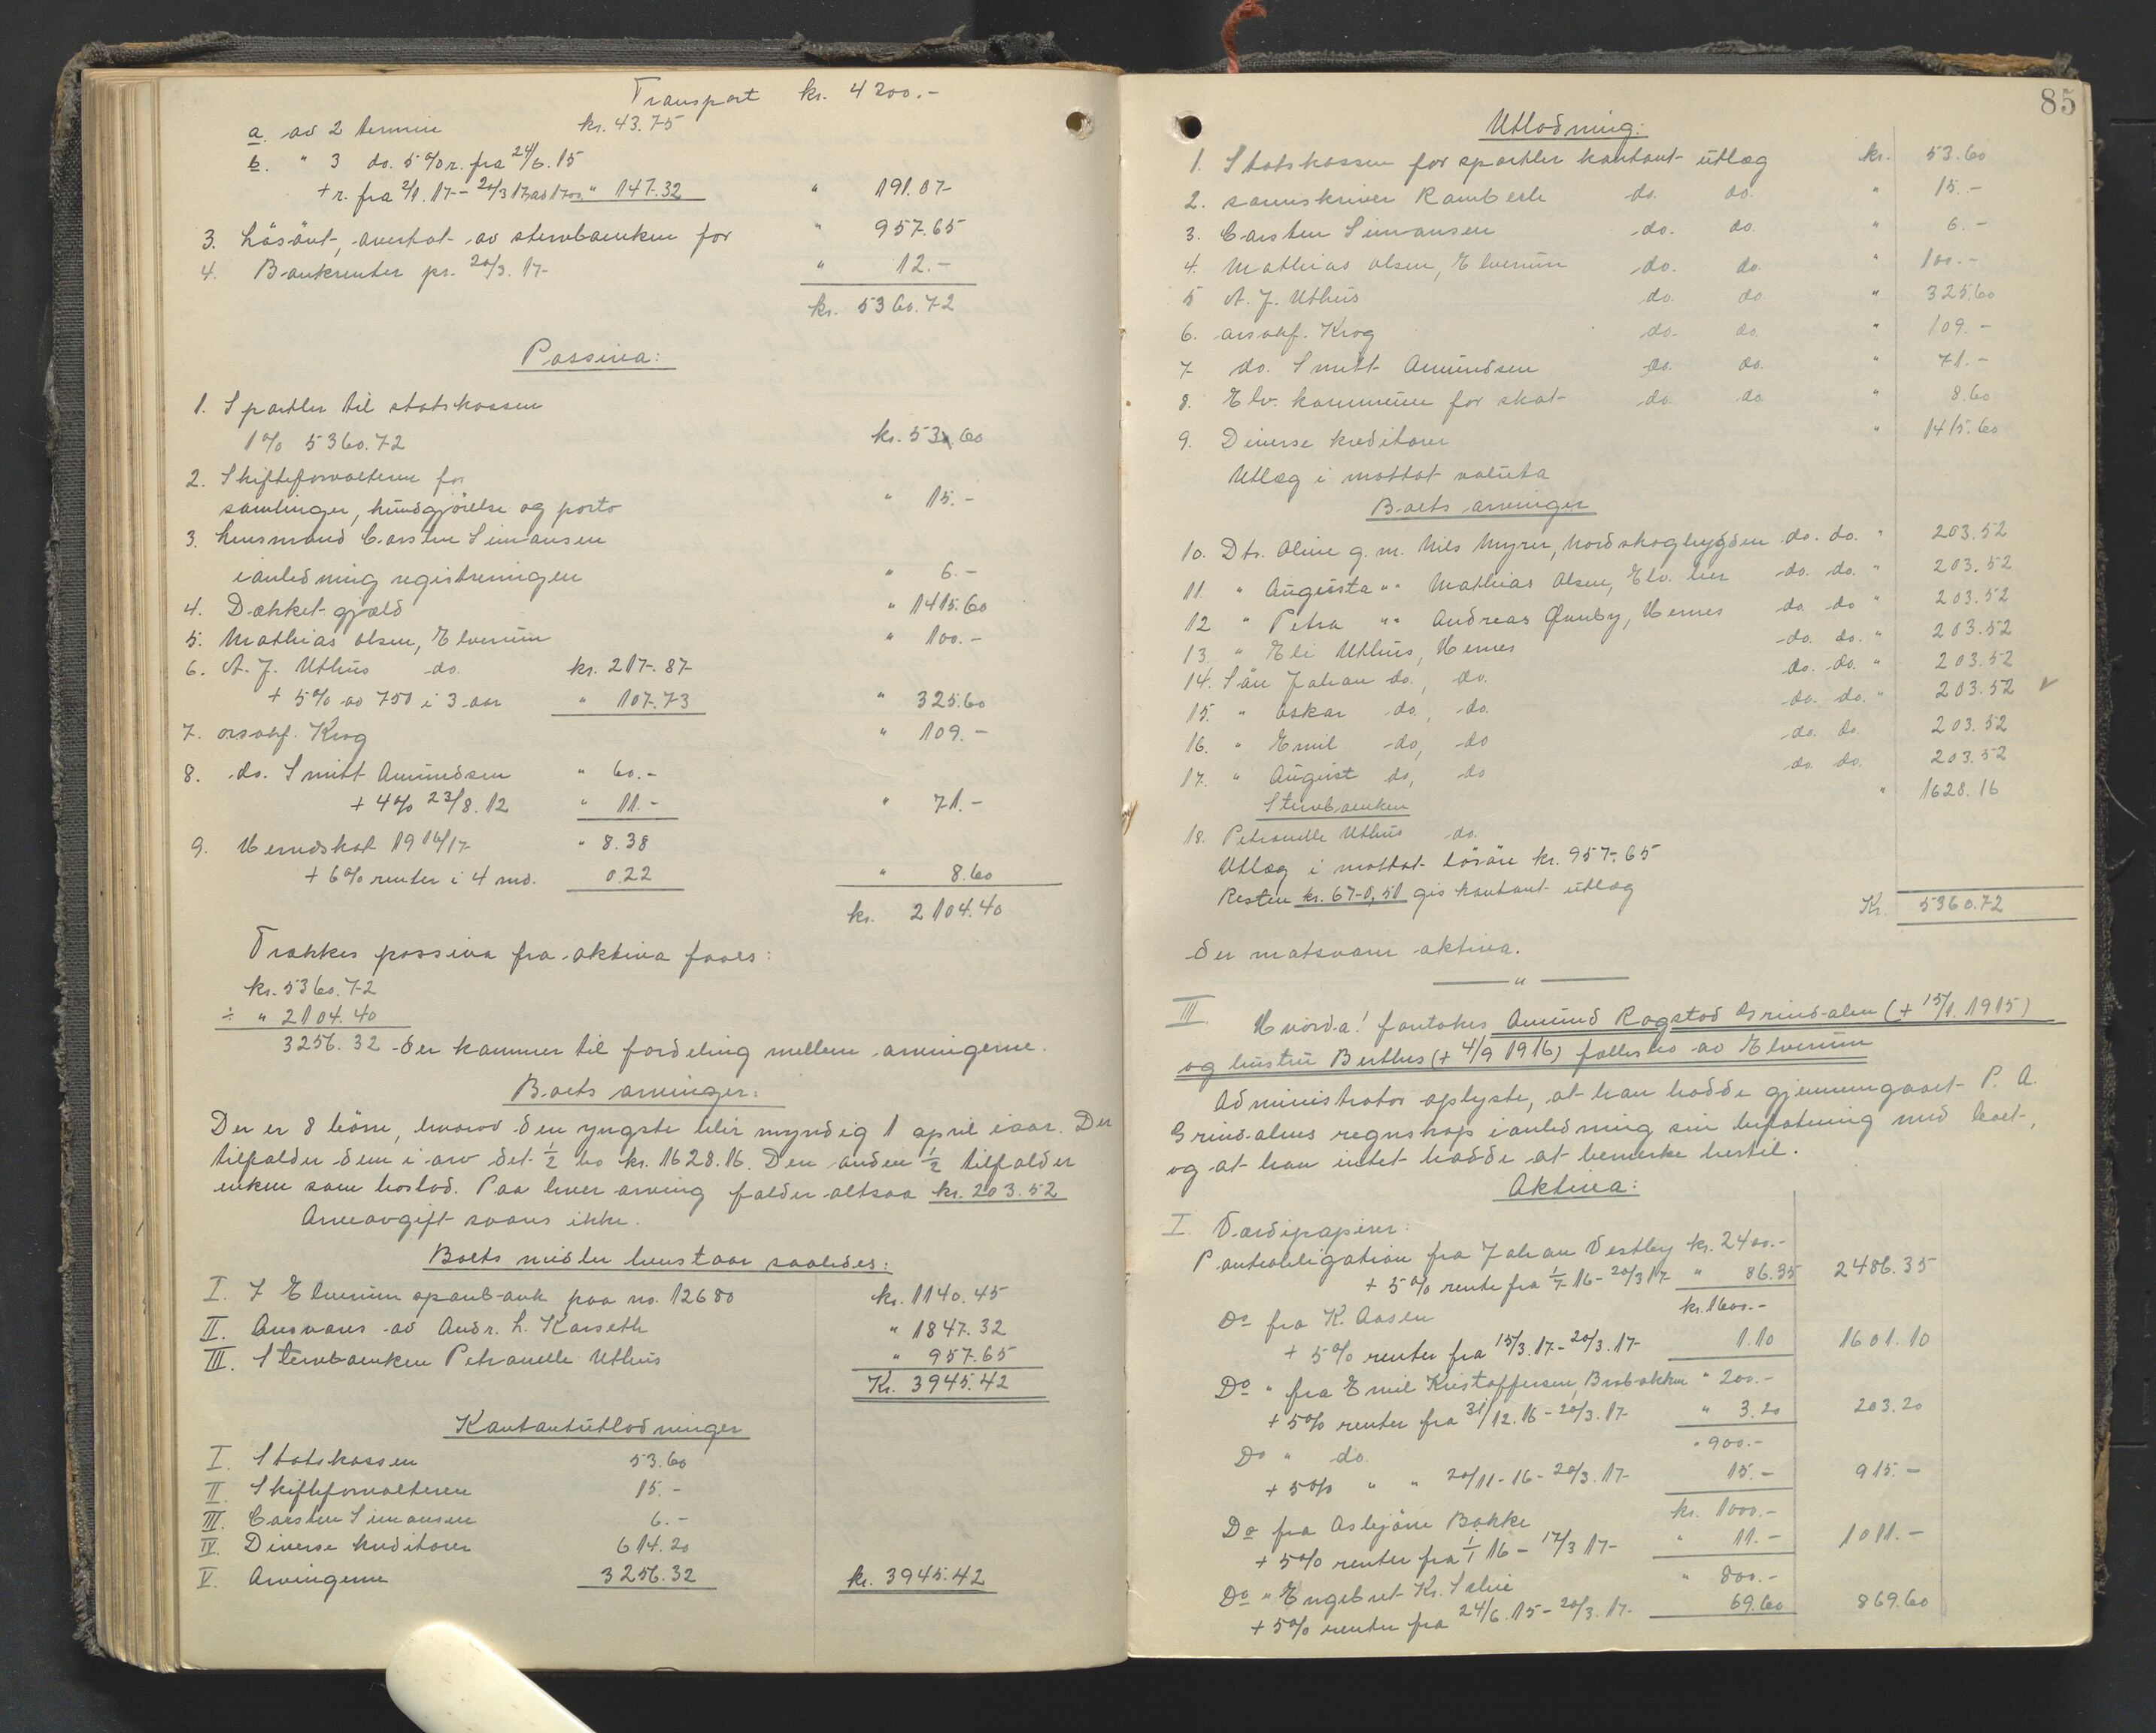 Transport kr. 4200.-
a. av 2 termin kr. 43.75
b. " 3 do. 5% r. fra 24/6. 15
+ r. fra 2/1. 17 - 20/3 17 " 147.32 " 191.07
3. Løsøret, overtat av stervboenken for " 957.65
4. Bankrenter pr. 20/3. 17 " 12.-
kr. 5360.72
Passiva:
1. Sportler til statskassen
1% 5360.72 kr. 53.60
2. Skifteforvalteren for
samlinger, kundgjørelse og porto " 15.-
3. Lensmand Carsten Simensen
i anledning registreringen " 6.-
4. Dækket gjæld " 1415.60
5. Mathias Olsen, Elverum " 100.-
6. A. J. Uthus do. kr. 217.87
+ 5% av 750 i 3 aar " 107.73 " 325.60
7. orsakf. Krog " 109.-
8. do. Smitt Amundsen " 60.-
+ 4% 23/8. 12 " 11.- " 71.-
9. Herredskat 1916/17 " 8.38
+ 6% renter i 4 md. 0.22 " 8.60
kr. 2104.40
Trækkes passiva fra aktiva faaes:
kr. 5360.72
÷ " 2104.40
3256.32 der kommer til fordeling mellem arvingerne.
Boets arvinger:
Der er 8 børn, hvorav den yngste blir myndig 1 april iaar. Der
tilfalder dem i arv det 1/2 bo kr. 1628.16. Den anden 1/2 tilfalder
enken som boslod. Paa hver arving falder altsaa kr. 203.52
Arveavgift svares ikke.
Boets midler henstaar saaledes:
I. I Elverum sparebank paa no. 12680 kr. 1140.45
II. Ansvares av Andr. L. Karseth " 1847.32
III. Stervboenken Petronelle Uthus " 957.65
Kr. 3945.42
Kontantutlodninger
I. Statskassen 53.60
II. Skifteforvalteren 15.-
III. Carsten Simensen 6.-
IV. Diverse kreditorer 614.20
V. Arvingerne 3256.32 kr. 3945.42
85
Utlodning:
1. Statskassen for sportler kontant utlæg kr. 53.60
2. sorenskriver Ramberh do. do. " 15.-
3. Carsten Simensen do. do. " 6.-
4. Mathias Olsen, Elverum do. do. " 100.-
5 A. J. Uthus do. do. " 325.60
6. orsakf. Krog do. do. " 109.-
7 do. Smitt Amundsen do. do. " 71.-
8. Elv. kommune for skat do. do " 8.60
9. Diverse kreditorer " 1415.60
Utlæg i mottat valuta
Boets arvinger
10. Dtr. Oline g. m. Nils Myrer, Nordskogbygden do. do. " 203.52
11. " Augusta " " Mathias Olsen, Elv. her do. do. " 203.52
12 " Petra " " Andreas Qvæby, Hernes do do " 203.52
13. " Eli Uthus, Hernes do. do. " 203.52
14. Søn Johan do., do. do. do. " 203.52
15. " Oskar do., do. do. do. " 203.52 v
16. " Emil do, do do. do. 203.52
17. " August do, do do. do. 203.52
Stervboenken " 1628.16
18. Petronelle Uthus do.
Utlæg i mottat løsøre kr. 957.65
Resten kr. 670,51 gis kontant utlæg
Kr. 5360.72
der motsvarer aktiva.
"
III. Hvorda! foretokes Amund Rogstad Grindalen (+ 15/1. 1915)
og hustru Berthes (+ 4/9 1916) fællesbo av Elverum
Administrator oplyste, at han hadde gjennemgaaet P. A.
Grindalens regnskap i anledning sin befatning med boet,
og at han intet hadde at bemerke hertil.
Aktiva:
I. Værdipapirer:
Pantobligation fra Johan Vestby kr. 2400.-
+ 5% rente fra 1/7 16 - 20/3 17 " 86.35 2486.35
Do fra K. Aasen kr. 1600.-
+ 5% renter fra 15/3. 17 - 20/3. 17 1.10 1601.10
Do " fra Emil Kristoffersen, Brobakken " 200.-
+ 5% renter fra 31/12. 16 - 20/3. 17 " 3.20 203.20
Do " do. " 900.-
+ 5% " " 20/11 - 16 - 20/3. 17 15.- 915.-
Do fra Asbjørn Bakke kr. 1000.-
+ 5% renter fra 1/1 16 - 17/3 17 " 11.- 1011.-
Do " Engebret Kr. Sælie " 800.-
+ 5% renter fra 24/6. 15 - 20/3. 17 69.60 869.60